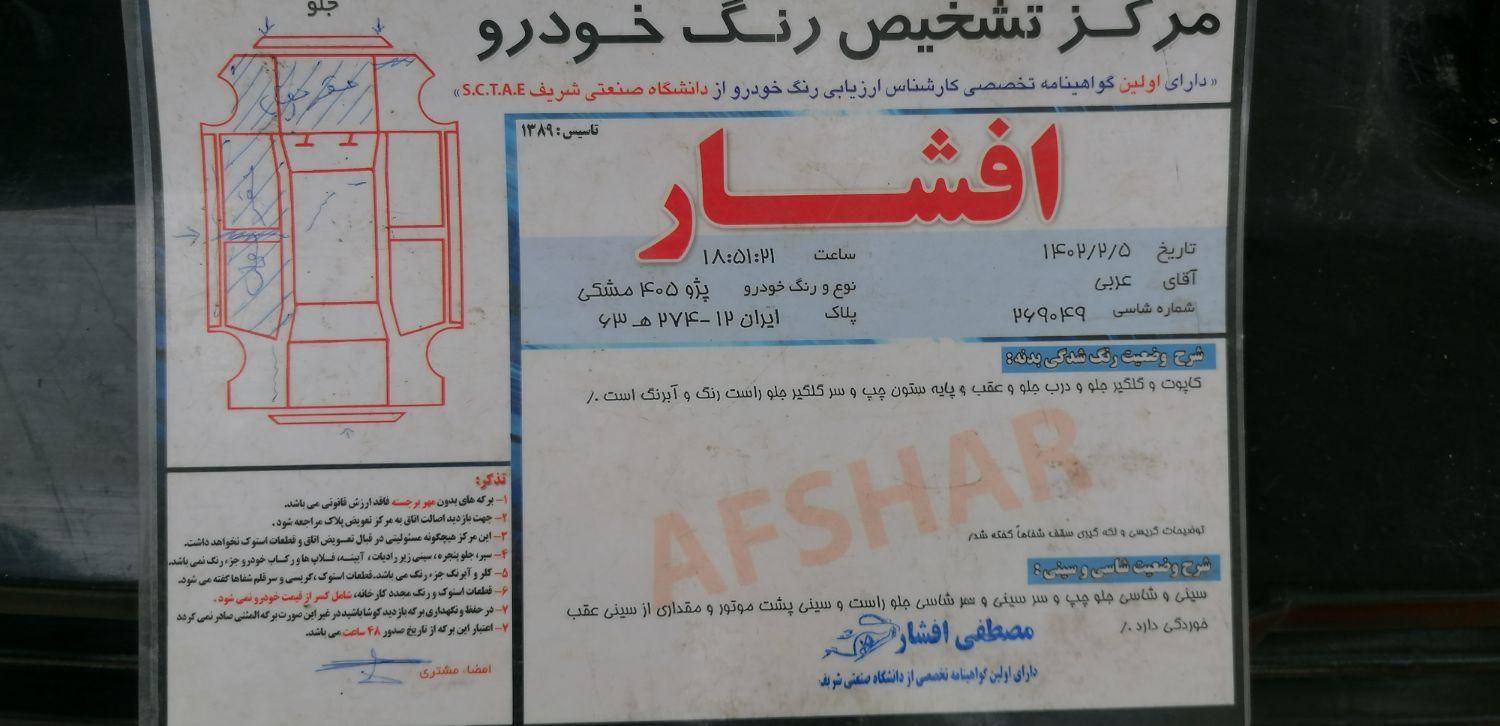 جلو
مرکز تشخیص رنگ خودرو
«دارای اولین گواهینامه تخصصی کارشناس ارزیابی رنگ خودرو از دانشگاه صنعتی شریف S.C.T.A.E»
تاسیس: ۱۳۸۹
افشار
تاریخ ۱۴۰۲/۲/۵ ساعت ۱۸:۵۱:۲۱
آقای عربی نوع و رنگ خودرو پژو ۴۰۵ مشکی
شماره شاسی ۲۶۹۰۴۹ پلاک ایران ۱۲-۲۷۴ هـ ۶۳
شرح وضعیت رنگ شدگی بدنه:
کاپوت و گلگیر جلو و درب جلو و عقب و پایه ستون چپ و سر گلگیر جلو راست رنگ و آبرنگ است ./
AFSHAR
توضیحات گریسی و لکه گیری سقف شفاهاً گفته شد/
شرح وضعیت شاسی و سینی:
سینی و شاسی جلو چپ و سر سینی و سر شاسی جلو راست و سینی پشت موتور و مقداری از سینی عقب
خوردگی دارد ./
مصطفی افشار
دارای اولین گواهینامه تخصصی از دانشگاه صنعتی شریف
تذکر:
۱- برگه های بدون مهر برجسته فاقد ارزش قانونی می باشد.
۲- جهت بازدید اصالت اتاق به مرکز تعویض پلاک مراجعه شود.
۳- این مرکز هیچگونه مسئولیتی در قبال تعویض اتاق و قطعات استوک نخواهد داشت.
۴- سپر، جلو پنجره، سینی زیر رادیات، آیینه، فلاپ ها و رکاب خودرو جزء رنگ نمی باشد.
۵- کلر و آبرنگ جزء رنگ می باشد. قطعات استوک، گریسی و سر قلم شفاها گفته می شود.
۶- قطعات استوک و رنگ مجدد کارخانه، شامل کسر از قیمت خودرو نمی شود.
۷- در حفظ و نگهداری برگه بازدید کوشا باشید در غیر این صورت برگه المثنی صادر نمی گردد
۷- اعتبار این برگه از تاریخ صدور ۴۸ ساعت می باشد.
امضاء مشتری